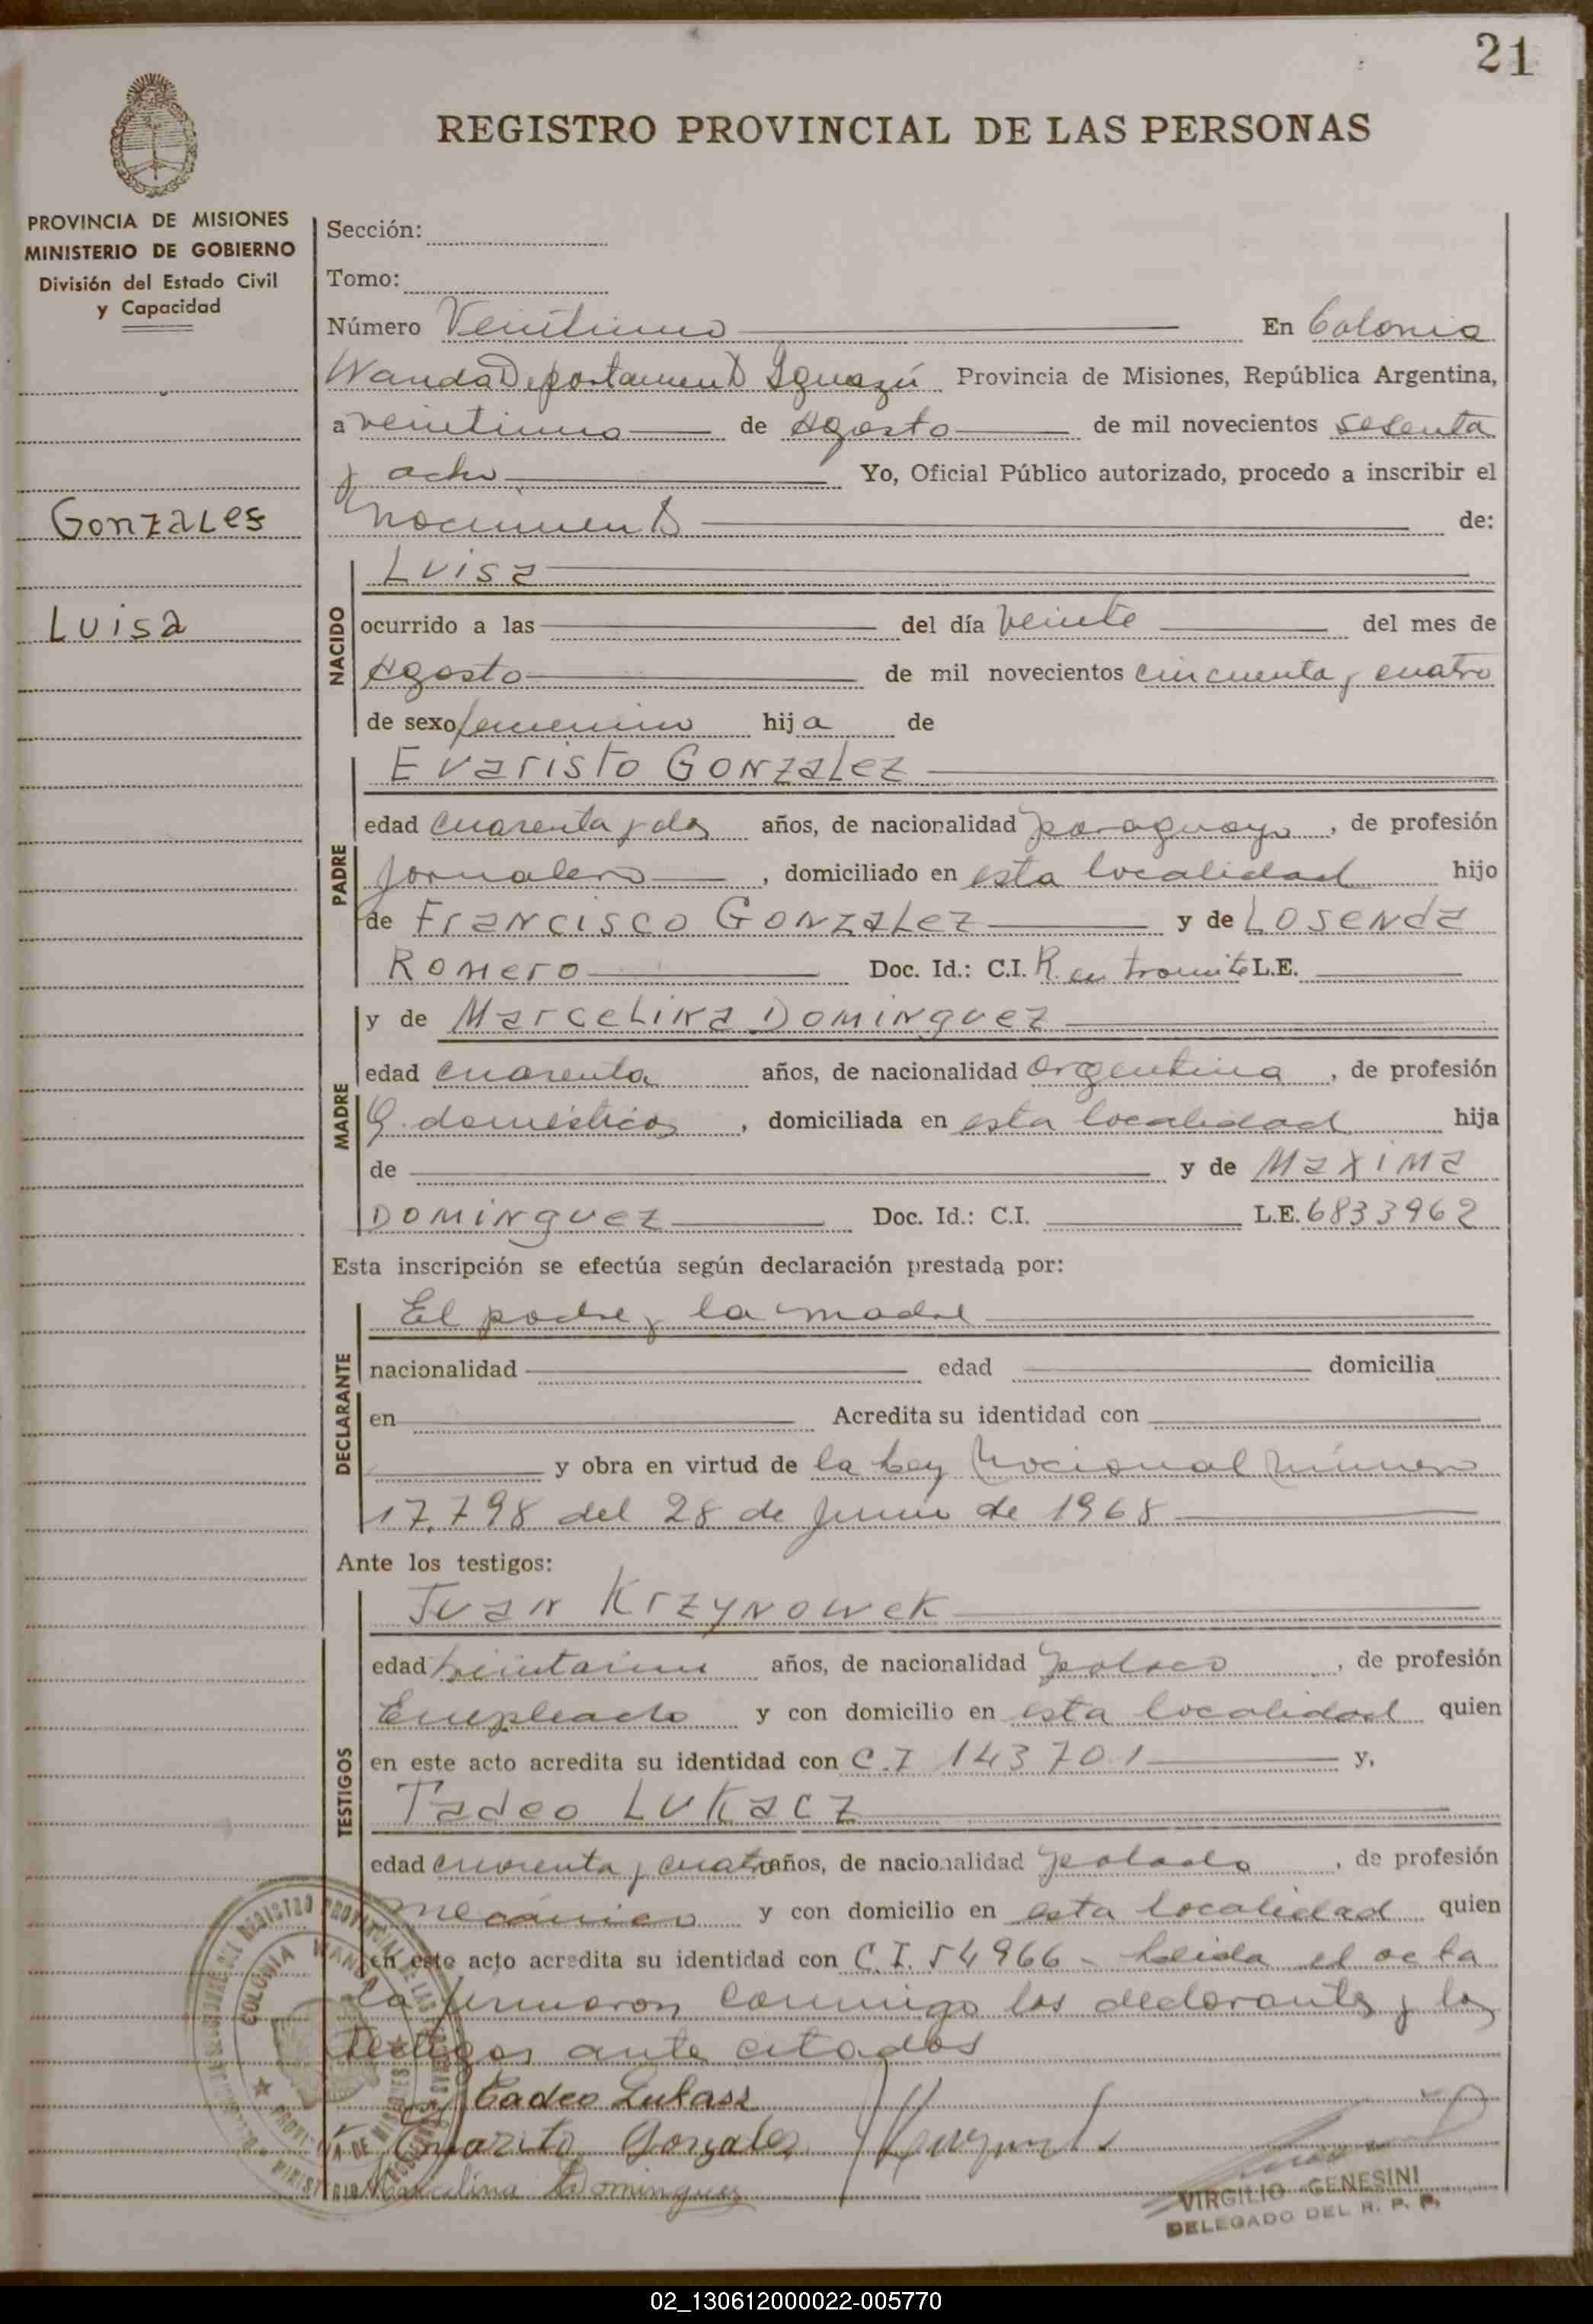 21
REGISTRO PROVINCIAL DE LAS PERSONAS
PROVINCIA DE MISIONES
MINISTERIO DE GOBIERNO
División del Estado Civil
y Capacidad
Gonzales
Luisa
Sección:
Tomo:
Número Veintiuno En Colonia
Wanda Departamento Iguazú Provincia de Misiones, República Argentina,
a veintiuno de Agosto de mil novecientos sesenta
y ocho Yo, Oficial Público autorizado, procedo a inscribir el
nacimiento de:
NACIDO
Luisa
ocurrido a las del día veinte del mes de
Agosto de mil novecientos cincuenta y cuatro
de sexo femenino hija de
PADRE
Evaristo Gonzalez
edad cuarenta y dos años, de nacionalidad paraguayo, de profesión
Jornalero, domiciliado en esta localidad hijo
de Francisco Gonzalez y de Losenda
Romero Doc. Id.: C.I. R. en tramite L.E.
MADRE
y de Marcelina Dominguez
edad cuarenta años, de nacionalidad Argentina, de profesión
Q. domésticos, domiciliada en esta localidad hija
de y de Maxima
Dominguez Doc. Id.: C.I. L.E. 6833962
Esta inscripción se efectúa según declaración prestada por:
DECLARANTE
El padre y la madre
nacionalidad edad domicilia
en Acredita su identidad con
y obra en virtud de la Ley Nacional número
17.798 del 28 de Junio de 1968
Ante los testigos:
TESTIGOS
Juan Krzynowek
edad treintaiun años, de nacionalidad polaco, de profesión
Empleado y con domicilio en esta localidad quien
en este acto acredita su identidad con C.I 143701 y,
Tadeo Lukacz
edad cuarenta y cuatro años, de nacionalidad polaco, de profesión
mecánico y con domicilio en esta localidad quien
en este acto acredita su identidad con C.I. 54966 - Leida el acta
la firmaron conmigo los declarantes y los
testigos ante citados
Tadeo Lukasz
Evaristo Gonzales
Marcelina Dominguez
COLONIA WANDA
VIRGILIO GENESINI
DELEGADO DEL R. P. P.
02_130612000022-005770